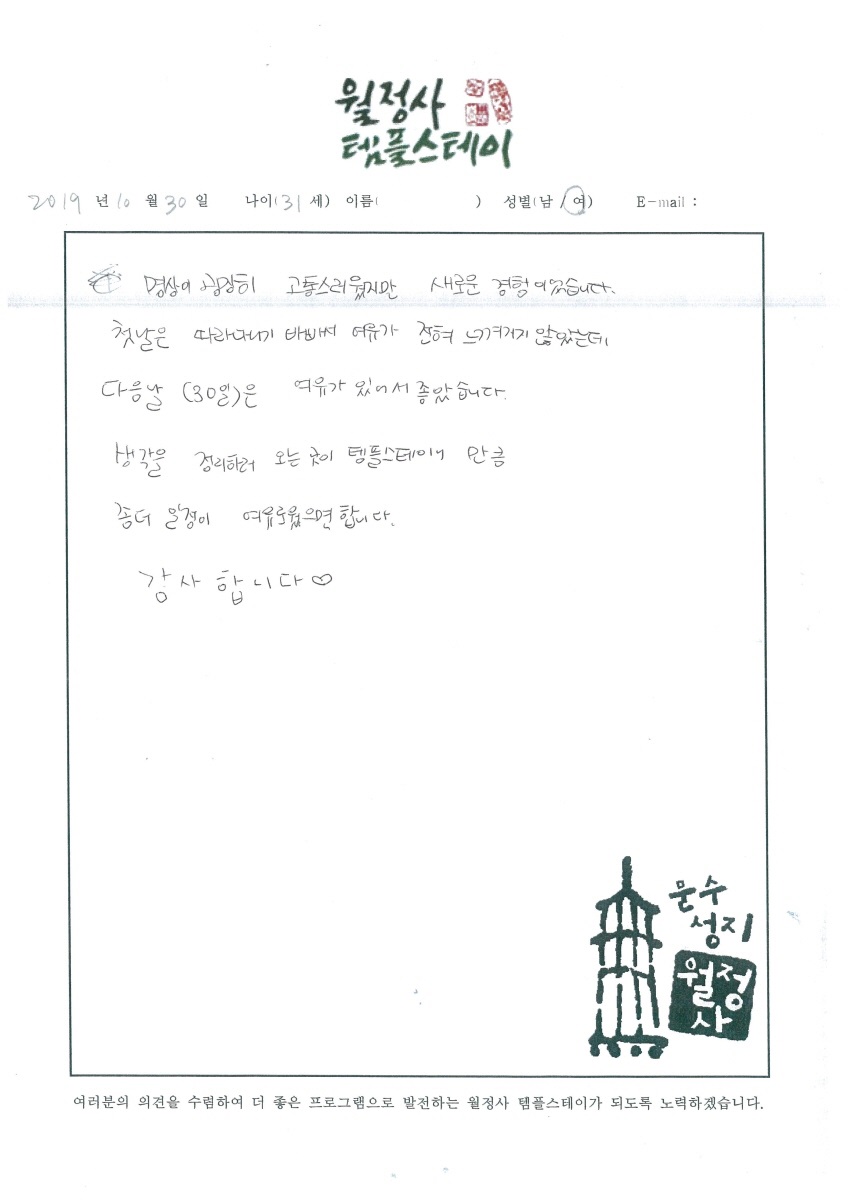 월정사
템플스테이
2019 년 10 월 30 일 나이(31 세) 이름( ) 성별(남 / 여) E-mail :
명상이 굉장히 고통스러웠지만 새로운 경험이었습니다.
첫날은 따라다니기 바빠서 여유가 전혀 느껴지지 않았는데
다음날 (30일)은 여유가 있어서 좋았습니다.
생각을 정리하러 오는 곳이 템플스테이니 만큼
좀더 일정이 여유로웠으면 합니다.
감사합니다♡
문수
성지
월정
사
여러분의 의견을 수렴하여 더 좋은 프로그램으로 발전하는 월정사 템플스테이가 되도록 노력하겠습니다.